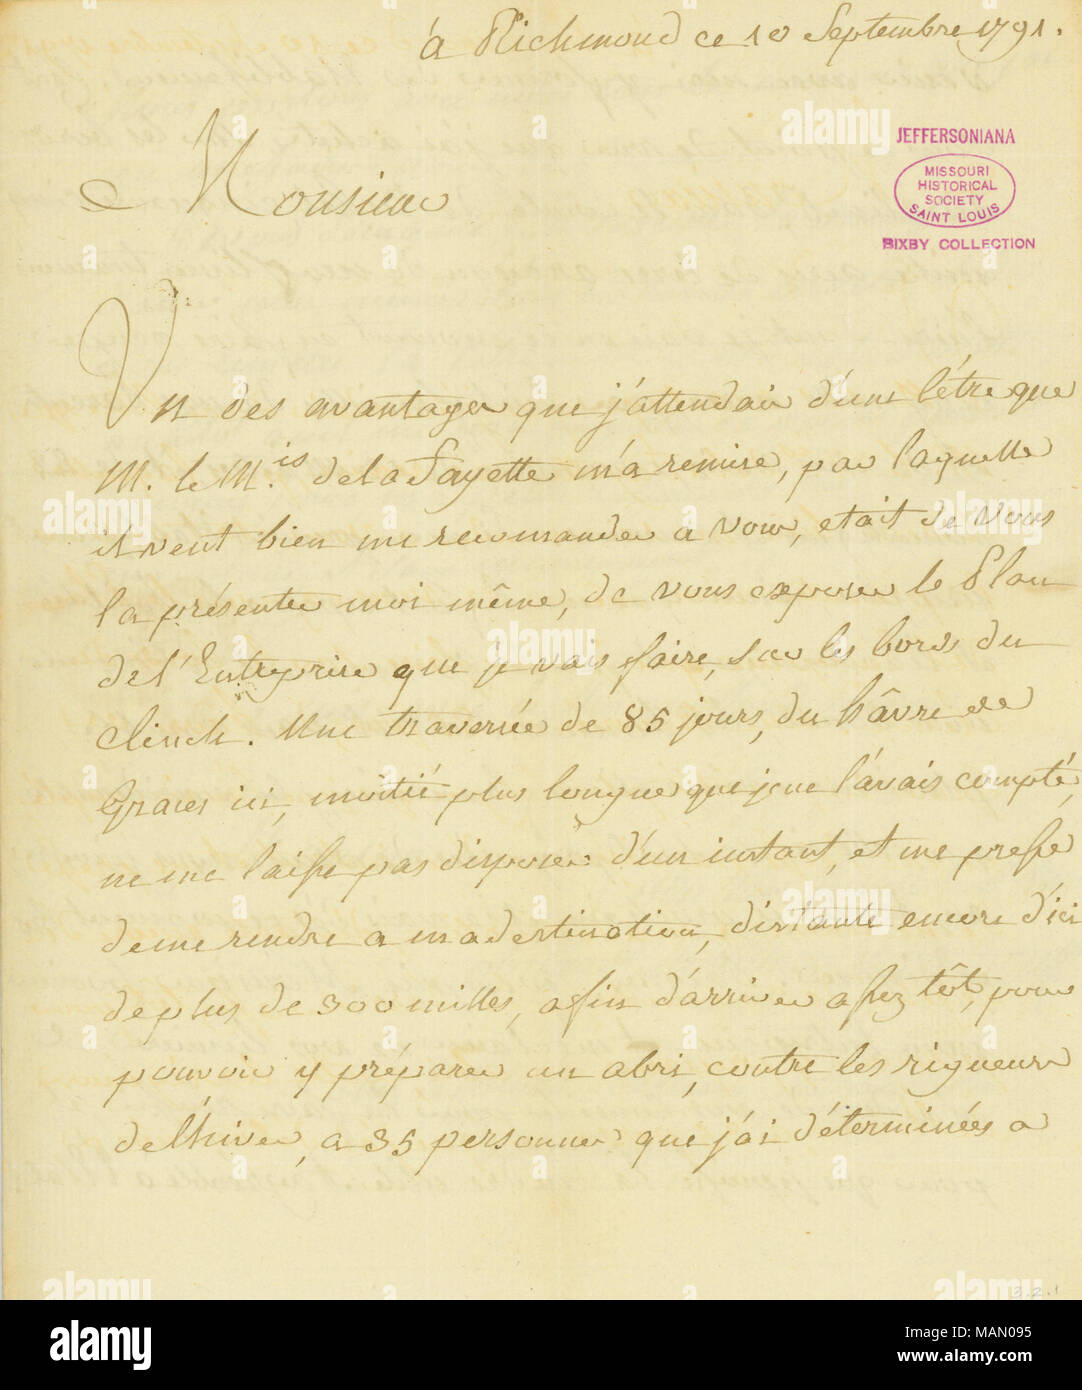 à Richmond ce 10 Septembre 1791.
JEFFERSONIANA
MISSOURI
HISTORICAL
SOCIETY
SAINT LOUIS
BIXBY COLLECTION
Monsieur
Un des avantages que j'attendais d'une létre que
M. le M.is de la Fayette m'a remise, par laquelle
il veut bien me recomander a vous, etait de vous
la présenter moi même, de vous exposer le Plan
de l'Entreprise que je vais faire, sur les bords du
Clinch. Une traversée de 85 jours, du hâvre de
Graces ici, moitié plus longue que je ne l'avais compté,
ne me laisse pas disposer d'un instant, et me presse
de me rendre a ma destination, distante encore d'ici
de plus de 300 milles, afin d'arriver assez tôt, pour
pouvoir y préparer un abri, contre les rigueurs
de l'hiver, a 35 personnes que j'ai déterminées a
3.2.1
alamy
Image ID: MAN095
www.alamy.com